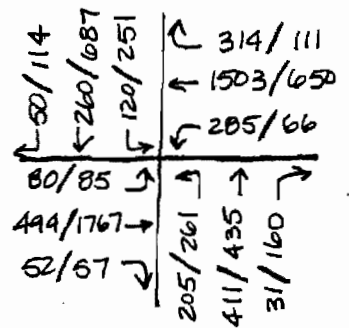 50/114
260/687
120/251
314/111
1503/650
285/66
80/85
494/1767
52/57
205/261
411/435
31/160